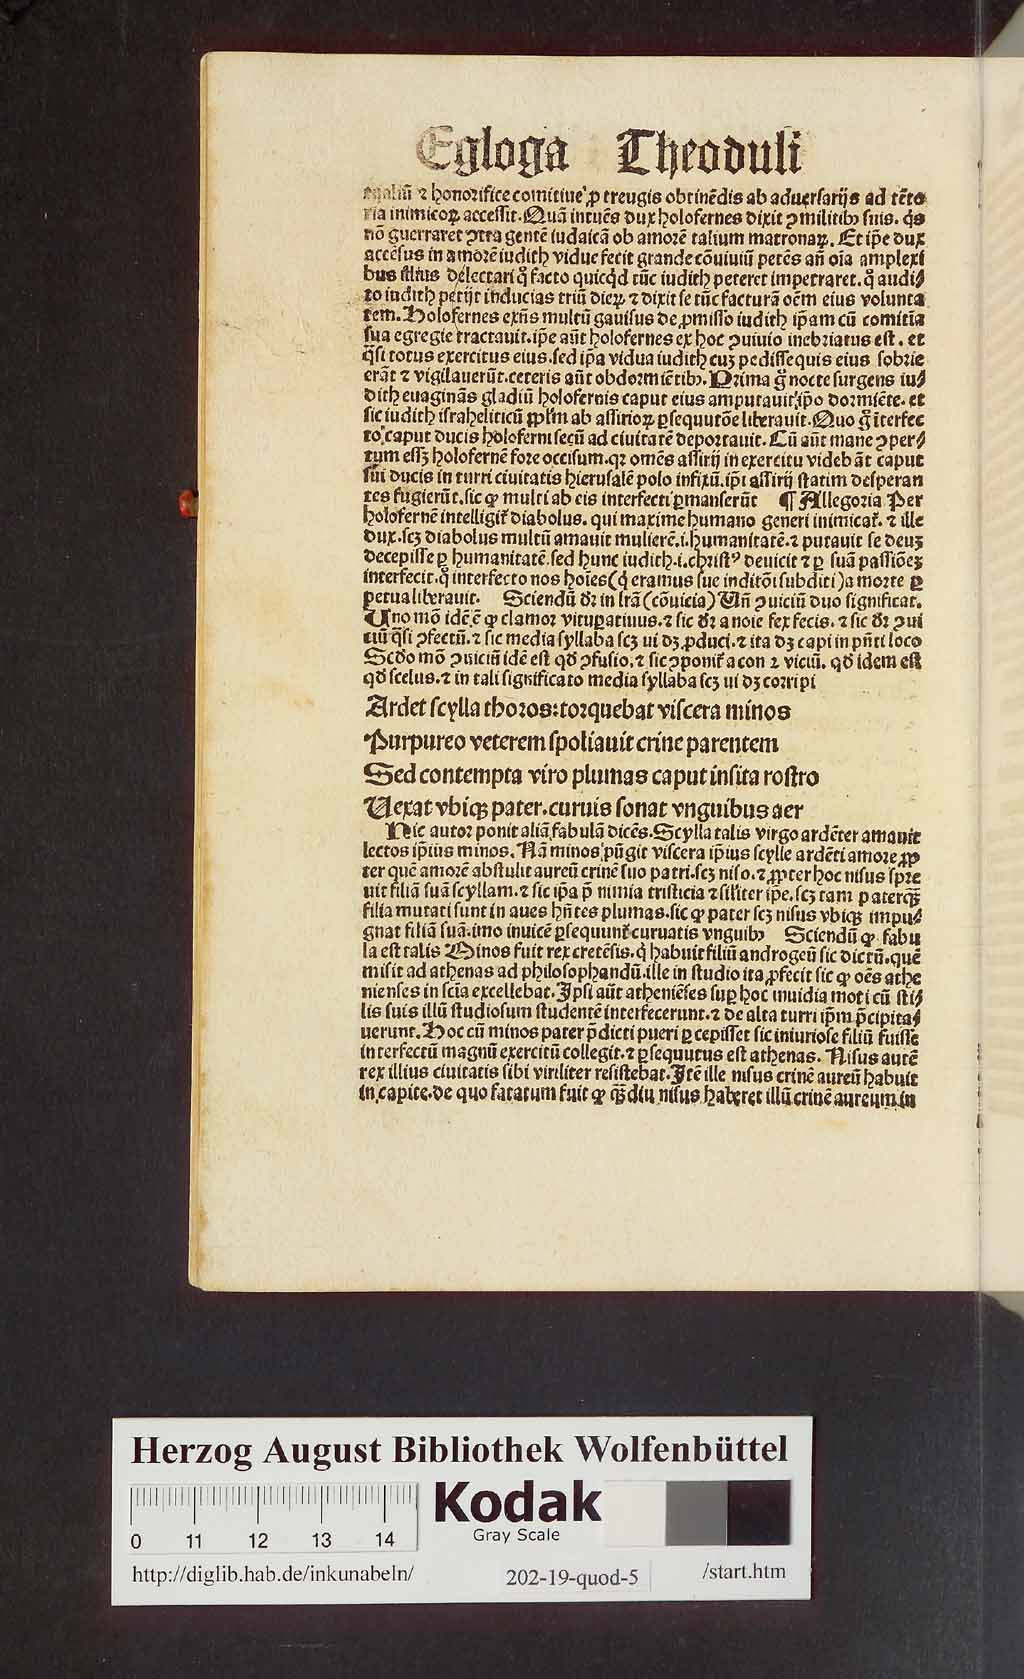 Egloga Theoduli
egaliū ⁊ honorifice comitiue ꝓ treugis obtinēdis ab aduersarijs ad tēto
ria inimicoꝝ accessit. Quā intuēs dux holofernes dixit ꝯmilitibꝫ suis. q̇s
nō guerraret ꝯtra gentē iudaicā ob amorē talium matronaꝝ. Et ip̄e dux
accēsus in amorē iudith vidue fecit grande cōuiuiū petēs an̄ oīa amplexi
bus illius delectari q̊ facto quicq̇d tūc iudith peteret impetraret. q̊ audi⸗
to iudith petijt inducias triū dieꝝ ⁊ dixit se tūc facturā oēm eius volunta
tem. Holofernes exn̄s multū gauisus de ꝓmisso iudith ip̄am cū comitia
sua egregie tractauit. ip̄e aūt holofernes ex hoc ꝯuiuio inebriatus est. et
q̄si totus exercitus eius. sed ip̄a vidua iudith cuꝫ pedissequis eius sobrie
erāt ⁊ vigilauerūt. ceteris aūt obdormiētibꝫ. Prima g̊ nocte surgens iu⸗
dith euaginās gladiū holofernis caput eius amputauit ip̄o dormiēte. et
sic iudith israheliticū ꝓpl̄m ab assirioꝝ ꝑsequutōe liberauit. Quo g̊ īterfec
to caput ducis holoferni secū ad ciuitatē deportauit. Cū aūt mane ꝯper⸗
tum essꝫ holofernē fore occisum. qꝛ omēs assirij in exercitu videbāt caput
sui ducis in turri ciuitatis hierusalē polo infixū. ip̄i assirij statim desperan
tes fugierūt. sic ꝙ multi ab eis interfecti ꝑmanserūt ¶ Allegoria Per
holofernē intelligit᷑ diabolus. qui maxime humano generi inimicat᷑. ⁊ ille
dux. scꝫ diabolus multū amauit mulierē. i. humanitatē. ⁊ putauit se deuꝫ
decepisse ꝑ humanitatē. sed hunc iudith. i. christꝰ deuicit ⁊ ꝑ suā passiōeꝫ
interfecit. q̊ interfecto nos hoīes (q̇ eramus sue inditōi subditi) a morte ꝑ
petua liberauit. Sciendū dr̄ in lr̄a (cōuicia) Un̄ ꝯuiciū duo significat.
Uno mō idē ē ꝙ clamor vituꝑatiuus. ⁊ sic dr̄ a noie fex fecis. ⁊ sic dr̄ ꝯui
ciū q̄si ꝯfectū. ⁊ sic media syllaba scꝫ ui dꝫ ꝓduci. ⁊ ita dꝫ capi in pn̄ti loco
Scd̄o mō ꝯuiciū idē est qd̄ ꝯfusio. ⁊ sic ꝯponit᷑ a con ⁊ viciū. qd̄ idem est
qd̄ scelus. ⁊ in tali significato media syllaba scꝫ ui dꝫ corripi
Ardet scylla thoros: torquebat viscera minos
Purpureo veterem spoliauit crine parentem
Sed contempta viro plumas caput insita rostro
Uexat vbiqꝫ pater. curuis sonat vnguibus aer
Hic autor ponit aliā fabulā dicēs. Scylla talis virgo ardēter amauit
lectos ip̄ius minos. Nā minos pūgit viscera ip̄ius scylle ardēti amore ꝓp
ter quē amorē abstulit aureū crinē suo patri. scꝫ niso. ⁊ ꝓpter hoc nisus spre
uit filiā suā scyllam. ⁊ sic ip̄a p̄ nimia tristicia ⁊ sil̄iter ip̄e. scꝫ tam pater qꝫ̄
filia mutati sunt in aues hn̄tes plumas. sic ꝙ pater scꝫ nisus vbiqꝫ impu⸗
gnat filiā suā. imo inuicē ꝑsequunt᷑ curuatis vnguibꝫ Sciendū ꝙ fabu
la est talis Minos fuit rex cretēsis. q̇ habuit filiū androgeū sic dictū. quē
misit ad athenas ad philosophandū. ille in studio ita ꝓfecit sic ꝙ oēs athe
nienses in scīa excellebat. Ipsi aūt atheniēses suꝑ hoc inuidia moti cū sti⸗
lis suis illū studiosum studentē interfecerunt. ⁊ de alta turri ip̄m p̄cipita⸗
uerunt. Hoc cū minos pater p̄dicti pueri ꝑcepisset sic iniuriose filiū fuisse
interfectū magnū exercitū collegit. ⁊ ꝑsequutus est athenas. Nisus autē
rex illius ciuitatis sibi viriliter resistebat. Itē ille nisus crinē aureū habuit
in capite. de quo fatatum fuit ꝙ qꝫ̄diu nisus haberet illū crinē aureum in
Herzog August Bibliothek Wolfenbüttel
0 11 12 13 14
Kodak
Gray Scale
http://diglib.hab.de/inkunabeln/ 202-19-quod-5 /start.htm